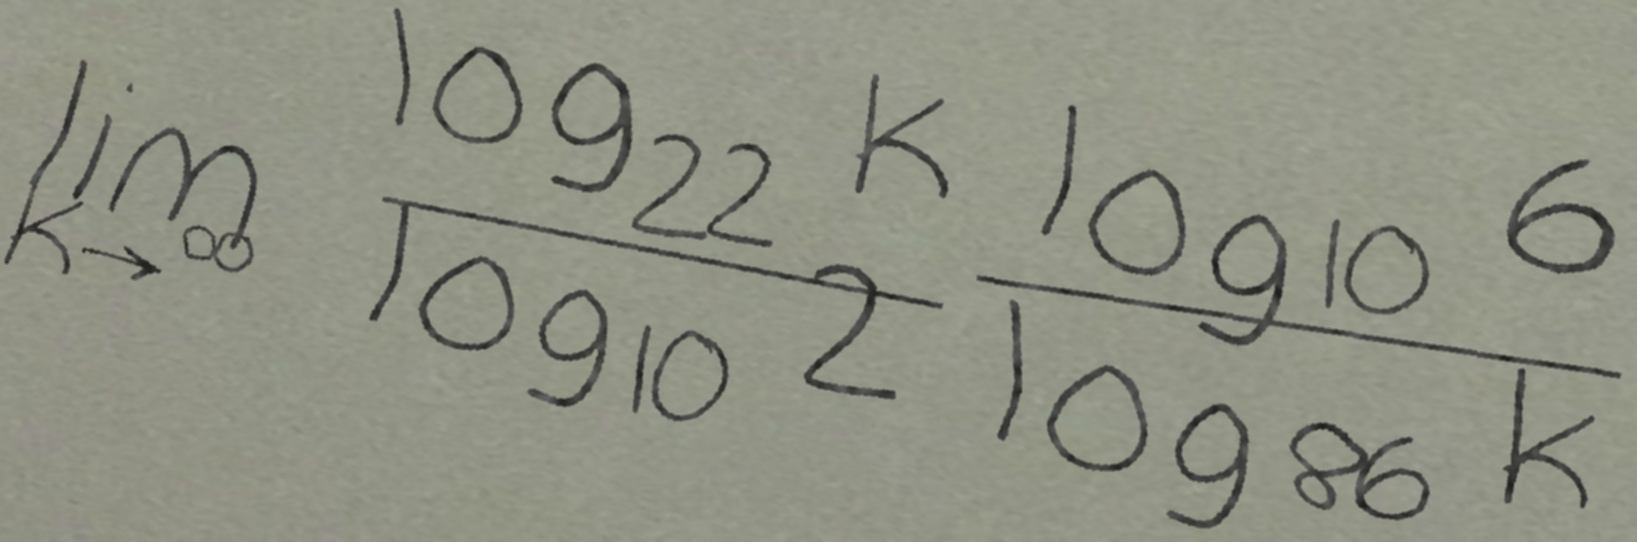 lim k→∞ \frac{log_{22} k}{log_{10} 2} \frac{log_{10} 6}{log_{86} k}